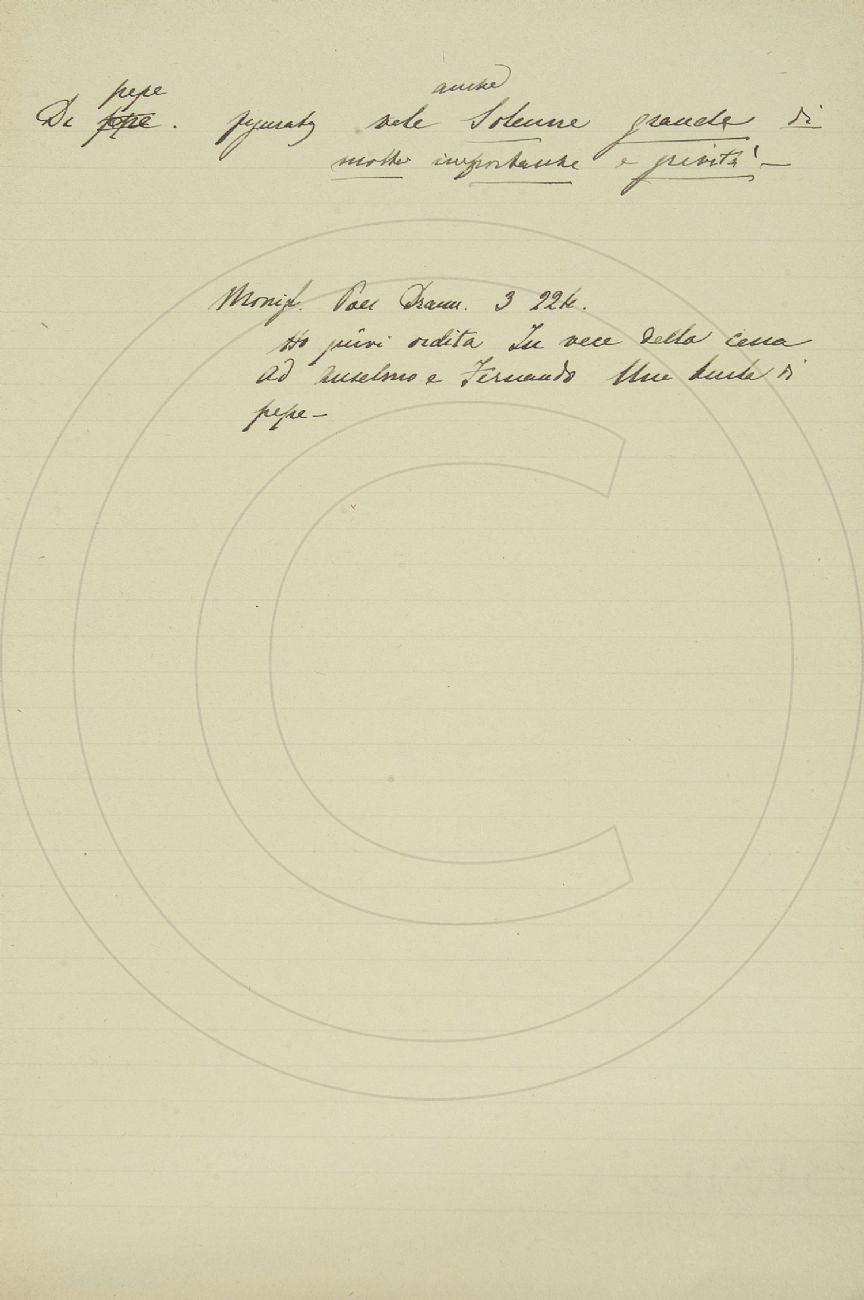 pepe anche
Di pepe. figurat vale Solenne grande di
molta importanza e gravità! —
Monigl. Poes Dram. 3 224.
Ho quivi ordita In vece della cena
Ad Anselmo e Fernando Una burla di
pepe —